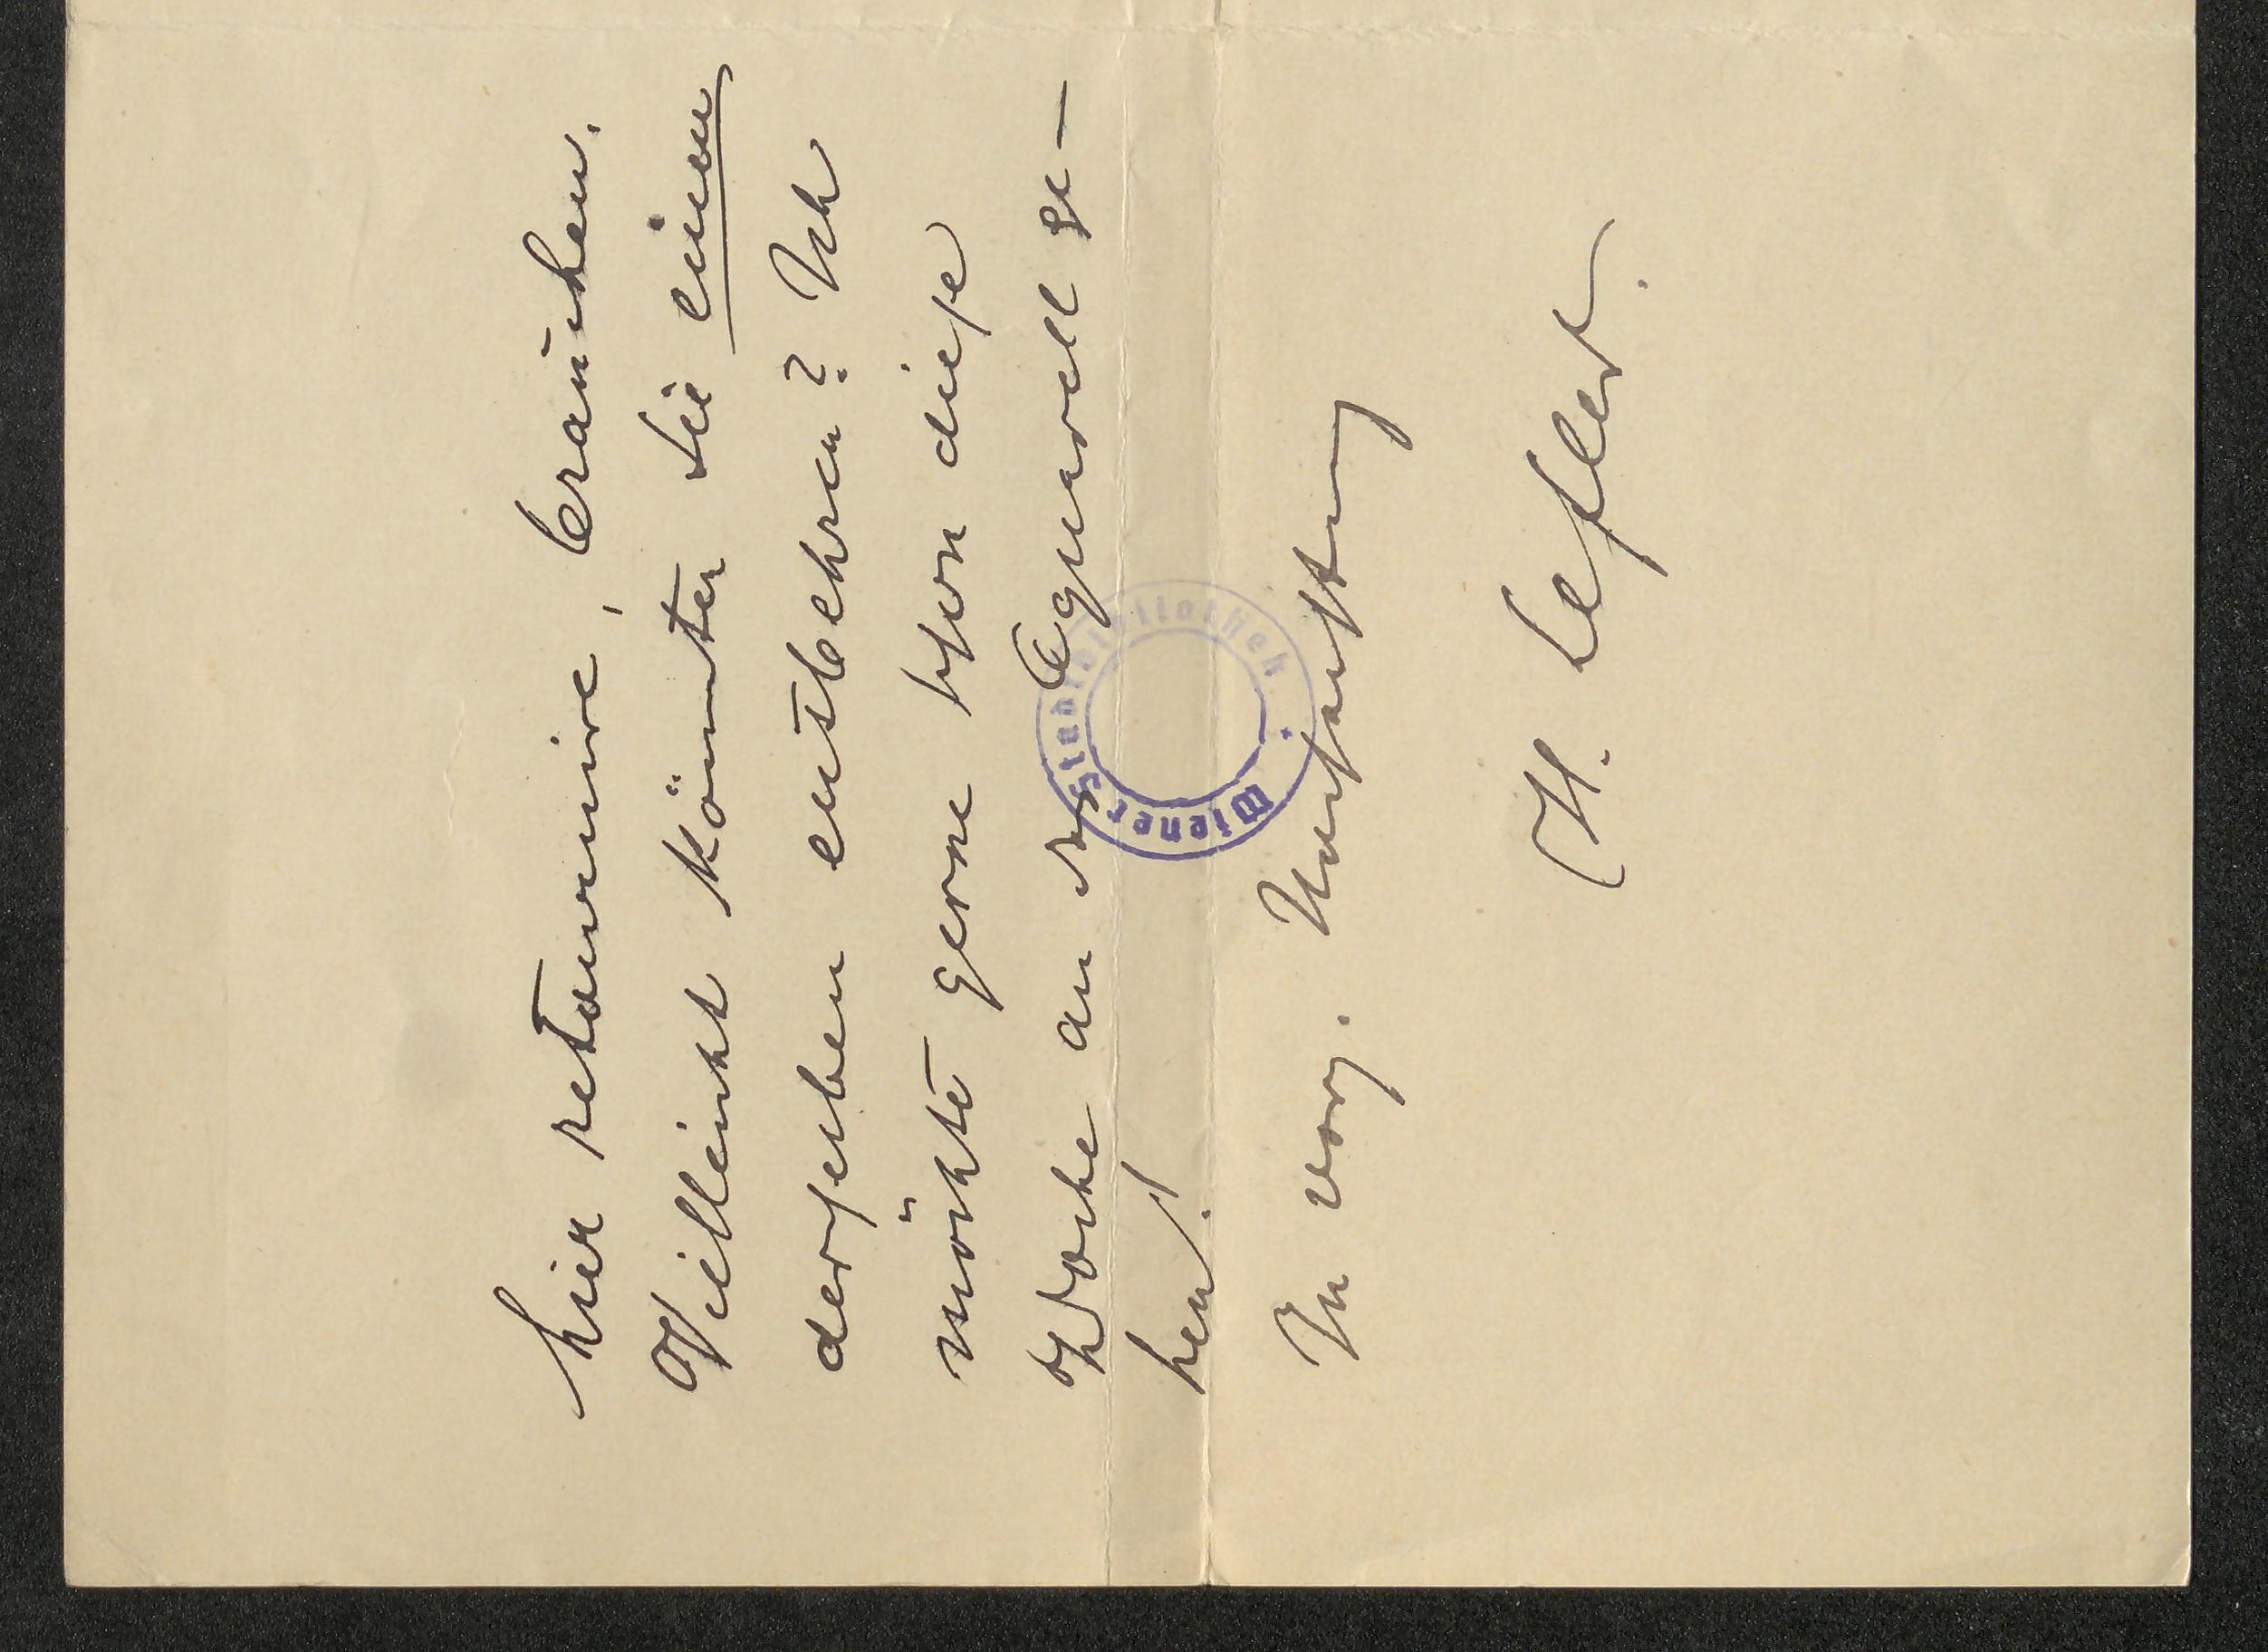 hier retournire, brauchen.
Vielleicht könnten Sie einen
derselben entbehren? Ich
möchte gerne schon diese
Woche an das Aquarell ge-
hen!
In vorz. Hochachtung
H. Lefler.
Wiener Stadtbibliothek